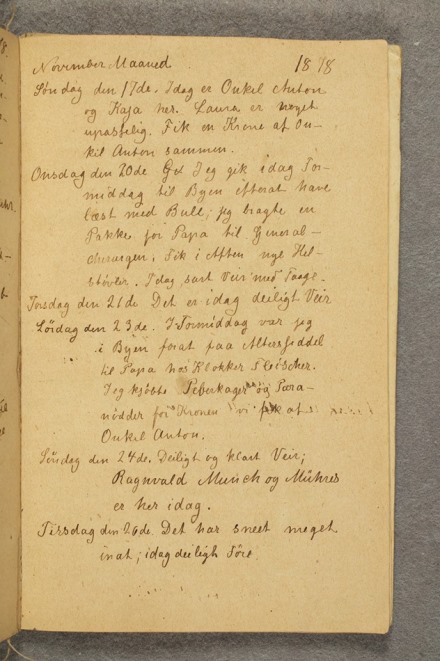 November Maaned 1878
Søndag den 17de. Idag er Onkel Anton
og Kaja her. Laura er noget
upasselig. Fik en Krone af On-
kel Anton sammen.
Onsdag den 20de Jeg gik idag For-
middag til Byen efterat have
læst med Bull; jeg bragte en
Pakke for Papa til General-
chirurgen. Fik i Aften nye Hel-
støvler. Idag sart Veir med Taage.
Torsdag den 21de Det er idag deiligt Veir
Lördag den 23de. I Formiddag var jeg
i Byen forat faa Altersseddel
til Papa hos Klokker Fleischer.
Jeg kjøbte Peberkager og Para-
nödder for Kronen vi fik af
Onkel Anton.
Söndag den 24de. Deiligt og klart Veir;
Ragnvald Munch og Mühres
er her idag.
Tirsdag den 26de. Det har sneet meget
inat; idag deiligt Före